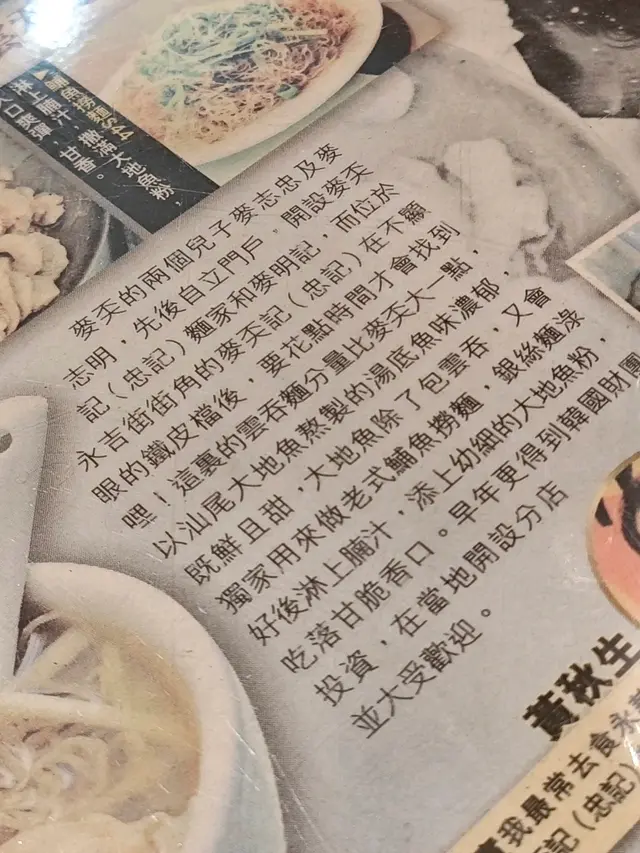 ▲鯆魚撈麵$44
淋上腩汁，撒滿大地魚粉，
口爽彈，甘香。
麥奀的兩個兒子麥志忠及麥
志明，先後自立門戶，開設麥奀
記（忠記）麵家和麥明記，而位於
永吉街街角的麥奀記（忠記）在不顯
眼的鐵皮檔後，要花點時間才會找到
哩！這裏的雲吞麵分量比麥奀大一點
以汕尾大地魚熬製的湯底魚味濃郁，
既鮮且甜，大地魚除了包雲吞，又會
獨家用來做老式鯆魚撈麵，銀絲麵淥
好後淋上腩汁，添上幼細的大地魚粉，
吃落甘脆香口。早年更得到韓國財團
投資，在當地開設分店
並大受歡迎。
黃秋生
我最常去食永
記（忠記）